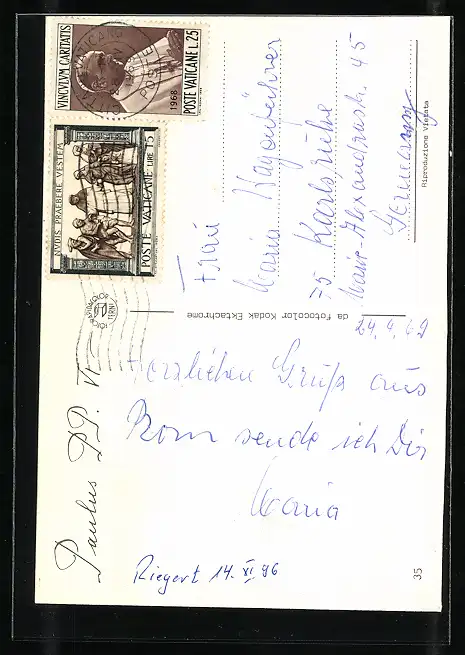 VINCVLVM CARITATIS
POSTE VATICANE L.25
1968
NVDIS PRAEBERE VESTEM
POSTE VATICANE LIRE 15
Frau
Maria
75 Karlsruhe
Marie-Alexandrastr. 45
Germany
Riproduzione Vietata
da Fotocolor Kodak Ektachrome
24.4.69
Herzlichen Gruß aus
Rom sende ich Dir
Maria
Paulus PP. VI
Riegert 14. XI. 86
35